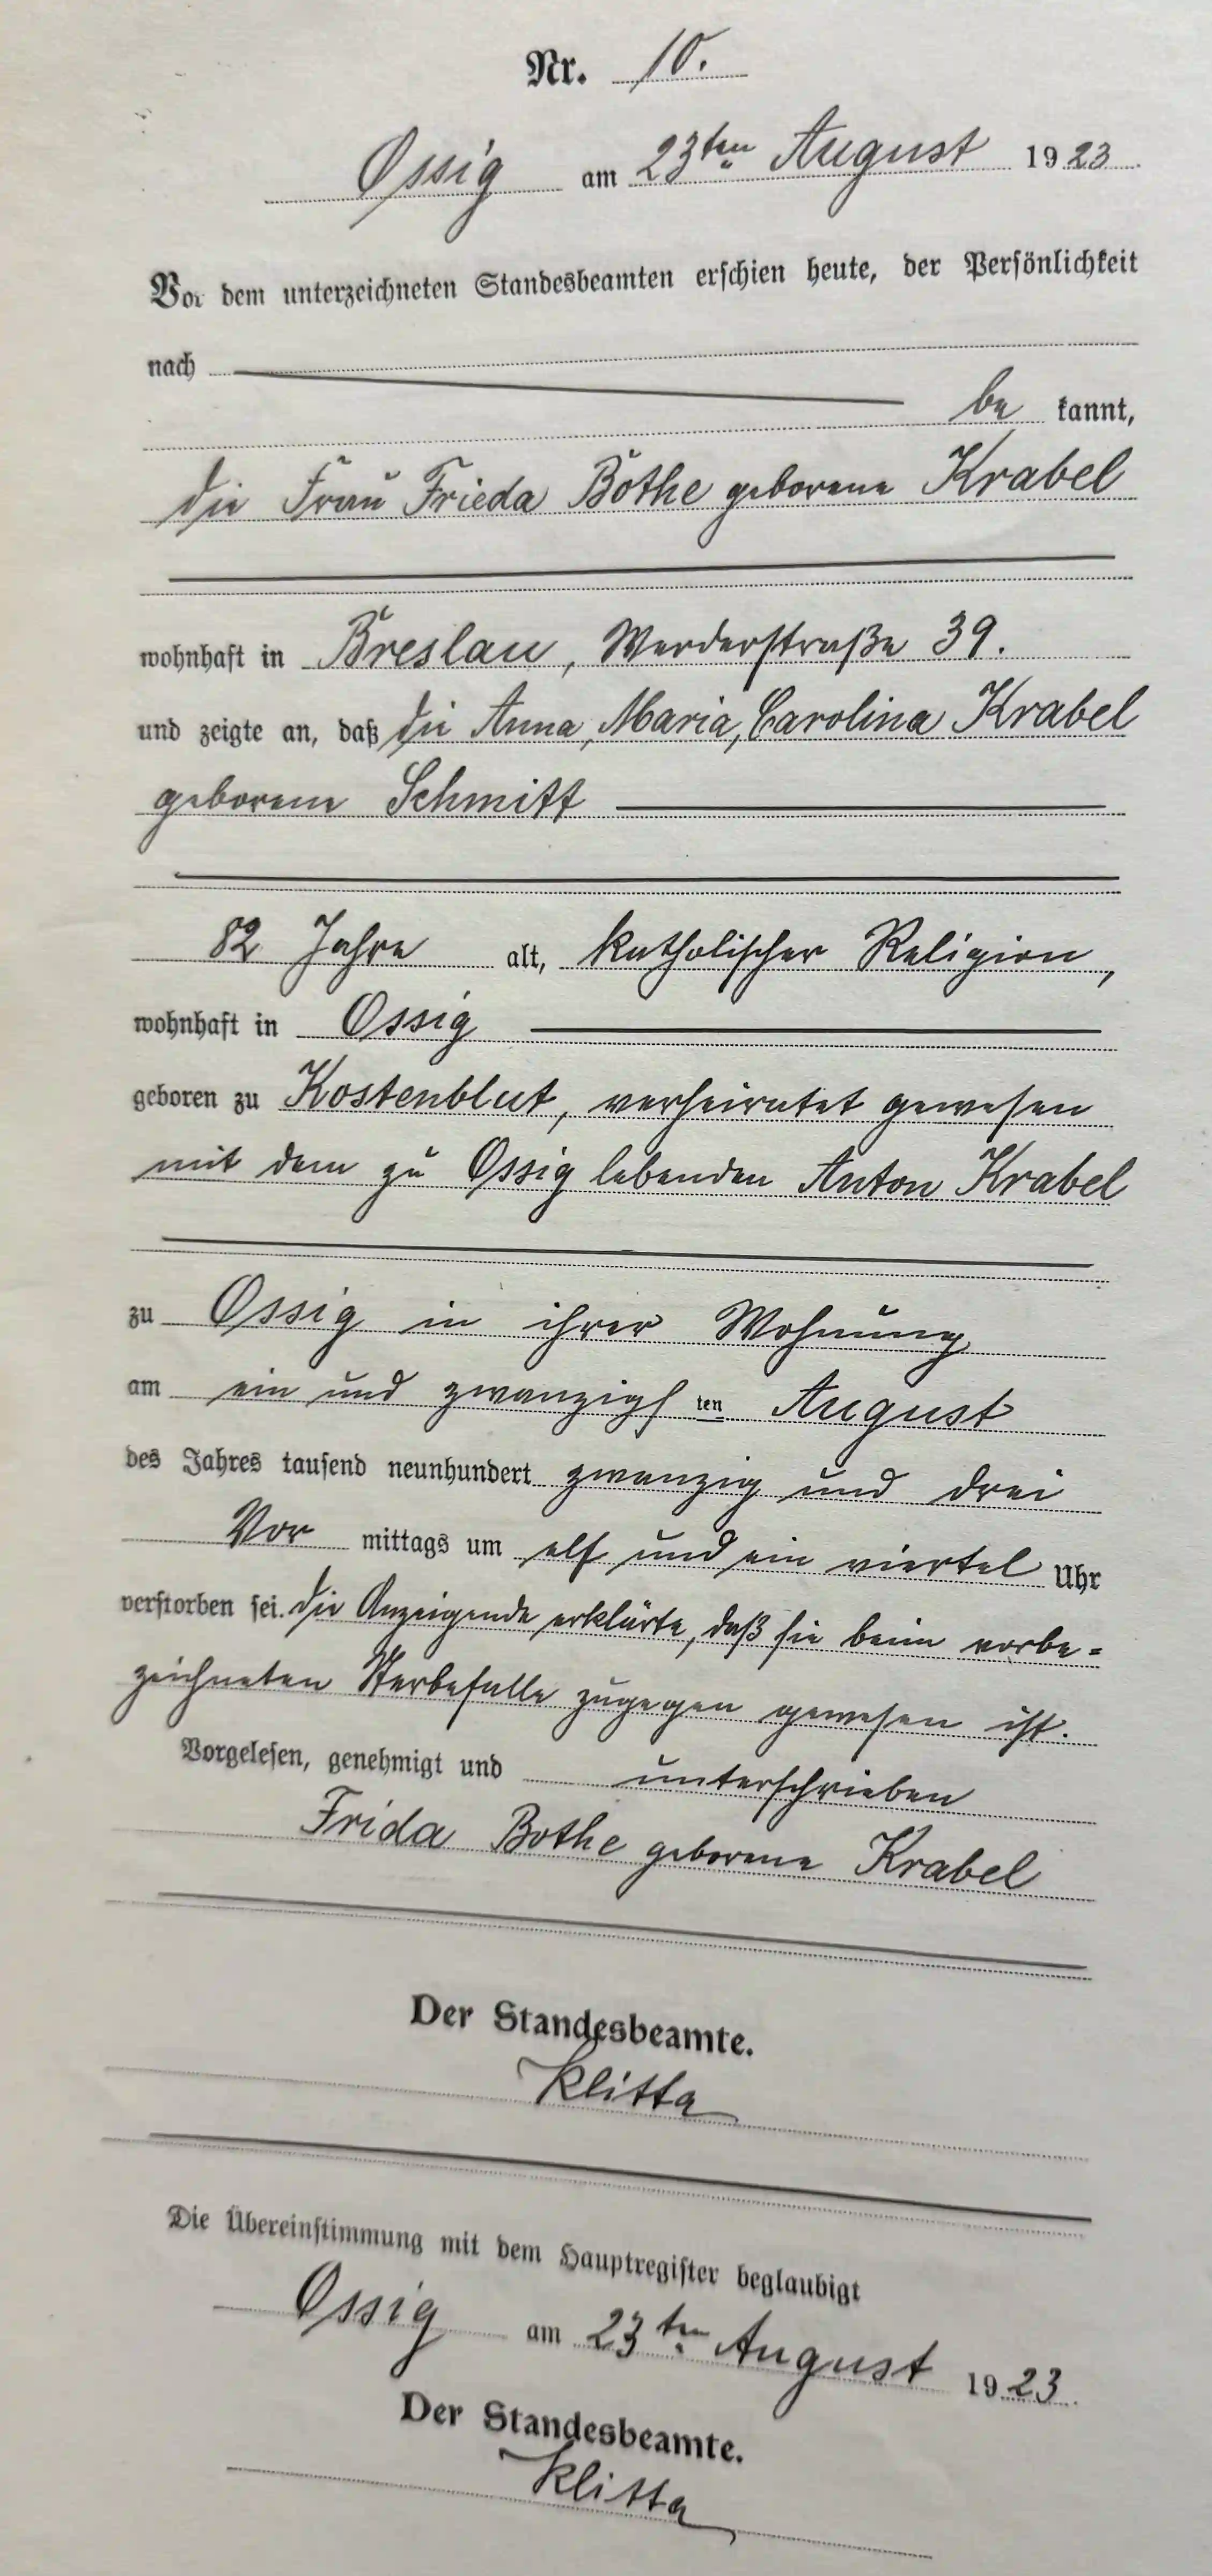 Nr. 10.
Ossig am 23ten August 1923
Vor dem unterzeichneten Standesbeamten erschien heute, der Persönlichkeit
nach
be kannt,
die Frau Frieda Bothe geborene Krabel
wohnhaft in Breslau, Werderstraße 39.
und zeigte an, daß die Anna, Maria, Carolina Krabel
geborene Schmitt
82 Jahre alt, katholischer Religion,
wohnhaft in Ossig
geboren zu Kostenblut, verheiratet gewesen
mit dem zu Ossig lebenden Anton Krabel
zu Ossig in ihrer Wohnung
am ein und zwanzigsten August
des Jahres tausend neunhundert zwanzig und drei
Vor mittags um elf und ein viertel Uhr
verstorben sei. Die Anzeigende erklärte, daß sie beim vorbe=
zeichneten Sterbefalle zugegen gewesen ist.
Vorgelesen, genehmigt und unterschrieben
Frida Bothe geborene Krabel
Der Standesbeamte.
Klitta
Die Übereinstimmung mit dem Hauptregister beglaubigt
Ossig am 23ten August 1923.
Der Standesbeamte.
Klitta